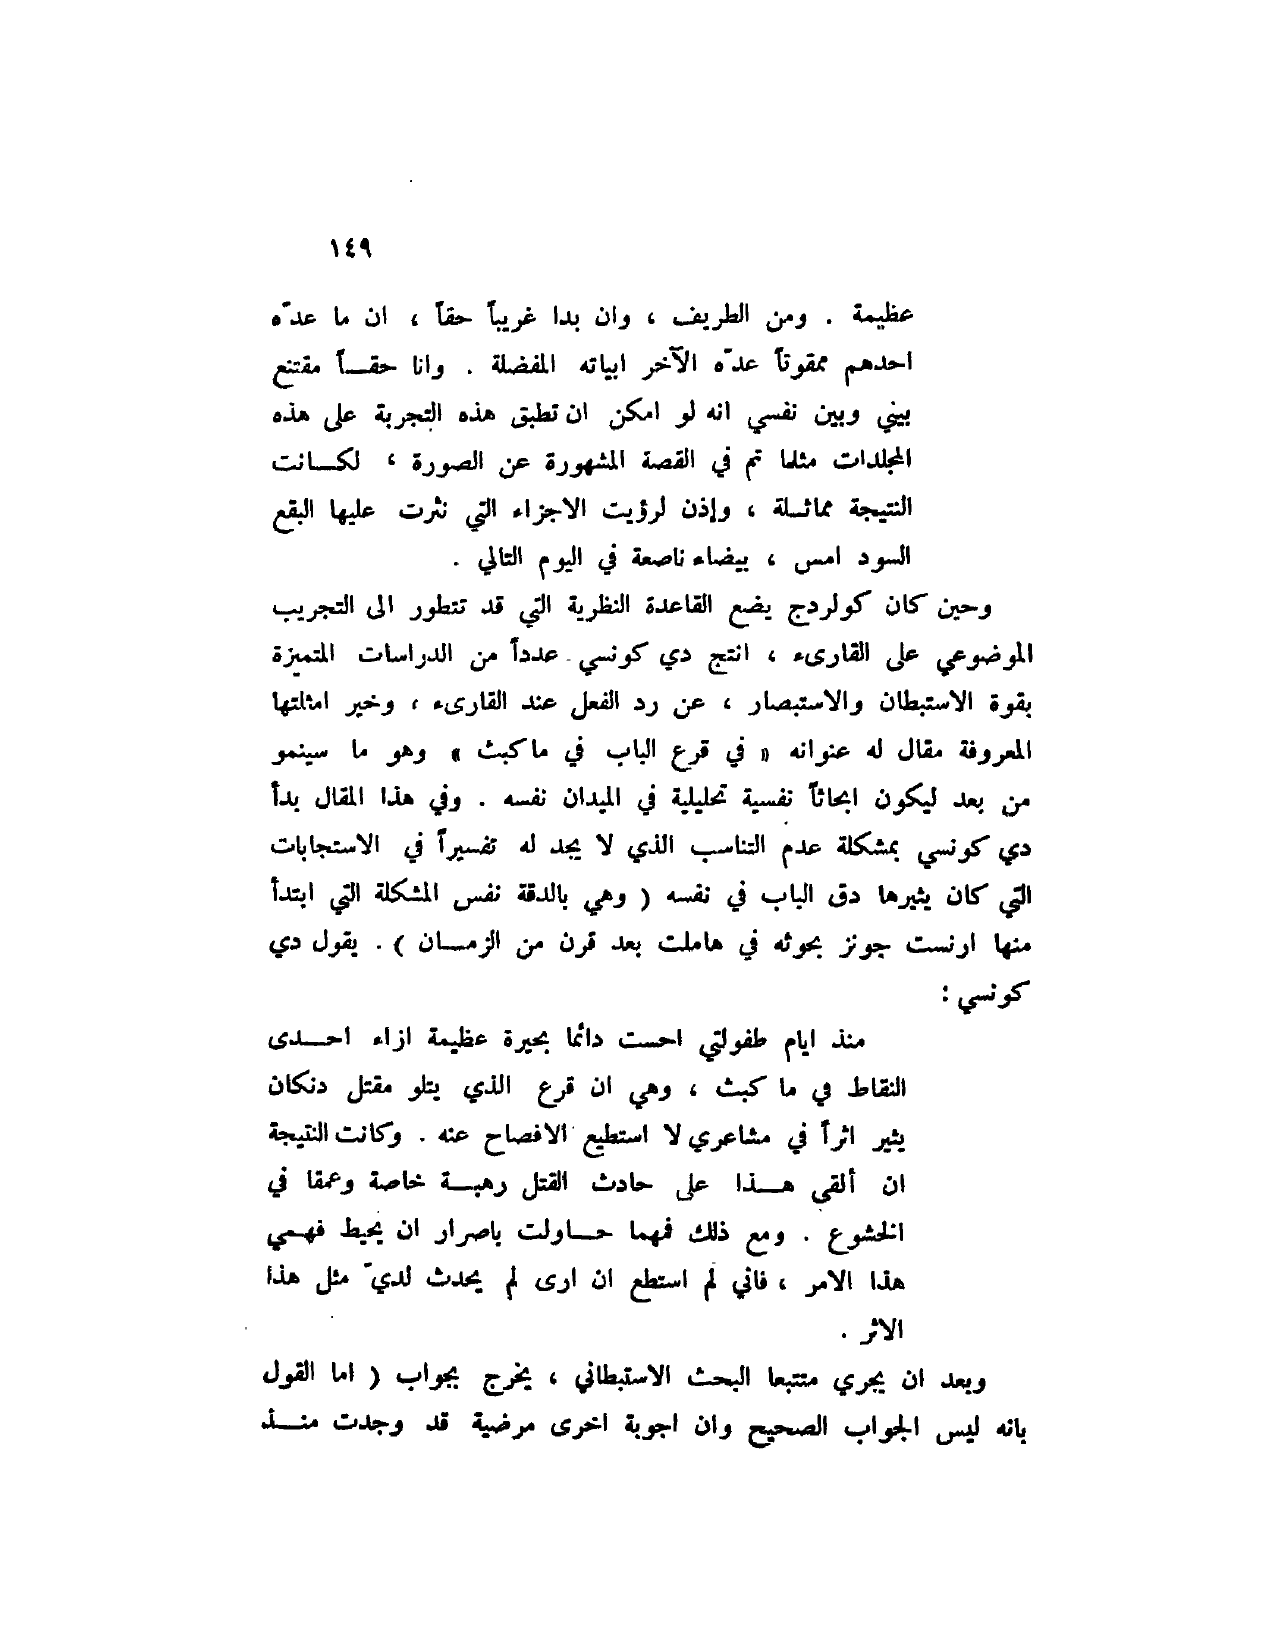 ١٤٩
عظيمة . ومن الطريف ، وان بدا غريباً حقاً ، ان ما عدّه
احدهم ممقوتاً عدّه الآخر ابياته المفضلة . وانا حقــاً مقتنع
بيني وبين نفسي انه لو امكن ان تطبق هذه التجربة على هذه
المجلدات مثلما تم في القصة المشهورة عن الصورة ، لكــانت
النتيجة مماثـلة ، وإذن لرؤيت الاجزاء التي نثرت عليها البقع
السود امس ، بيضاء ناصعة في اليوم التالي .
وحين كان كولردج يضع القاعدة النظرية التي قد تتطور الى التجريب
الموضوعي على القارىء ، انتج دي كونسي عدداً من الدراسات المتميزة
بقوة الاستبطان والاستبصار ، عن رد الفعل عند القارىء ، وخير امثلتها
المعروفة مقال له عنوانه « في قرع الباب في ماكبث » وهو ما سينمو
من بعد ليكون ابحاثاً نفسية تحليلية في الميدان نفسه . وفي هذا المقال بدأ
دي كونسي بمشكلة عدم التناسب الذي لا يجد له تفسيراً في الاستجابات
التي كان يثيرها دق الباب في نفسه ( وهي بالدقة نفس المشكلة التي ابتدأ
منها ارنست جونز بحوثه في هاملت بعد قرن من الزمــان ) . يقول دي
كونسي :
منذ ايام طفولتي احست دائما بحيرة عظيمة ازاء احــدى
النقاط في ما كبث ، وهي ان قرع الذي يتلو مقتل دنكان
يثير اثراً في مشاعري لا استطيع الافصاح عنه . وكانت النتيجة
ان ألقى هــذا على حادث القتل رهبــة خاصة وعمقا في
الخشوع . ومع ذلك فمهما حــاولت باصرار ان يحيط فهمي
هذا الامر ، فاني لم استطع ان ارى لم يحدث لديّ مثل هذا
الاثر .
وبعد ان يجري متتبعا البحث الاستبطاني ، يخرج بجواب ( اما القول
بانه ليس الجواب الصحيح وان اجوبة اخرى مرضية قد وجدت منــذ